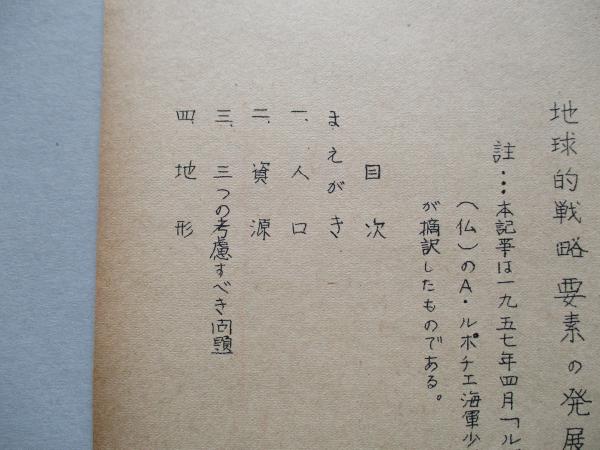 地球的戦略要素の発展
註…本記事は一九五七年四月「ル
(仏)のA・ルポチエ海軍少
が摘訳したものである。
目次
まえがき
一、人口
二、資源
三、三つの考慮すべき問題
四、地形